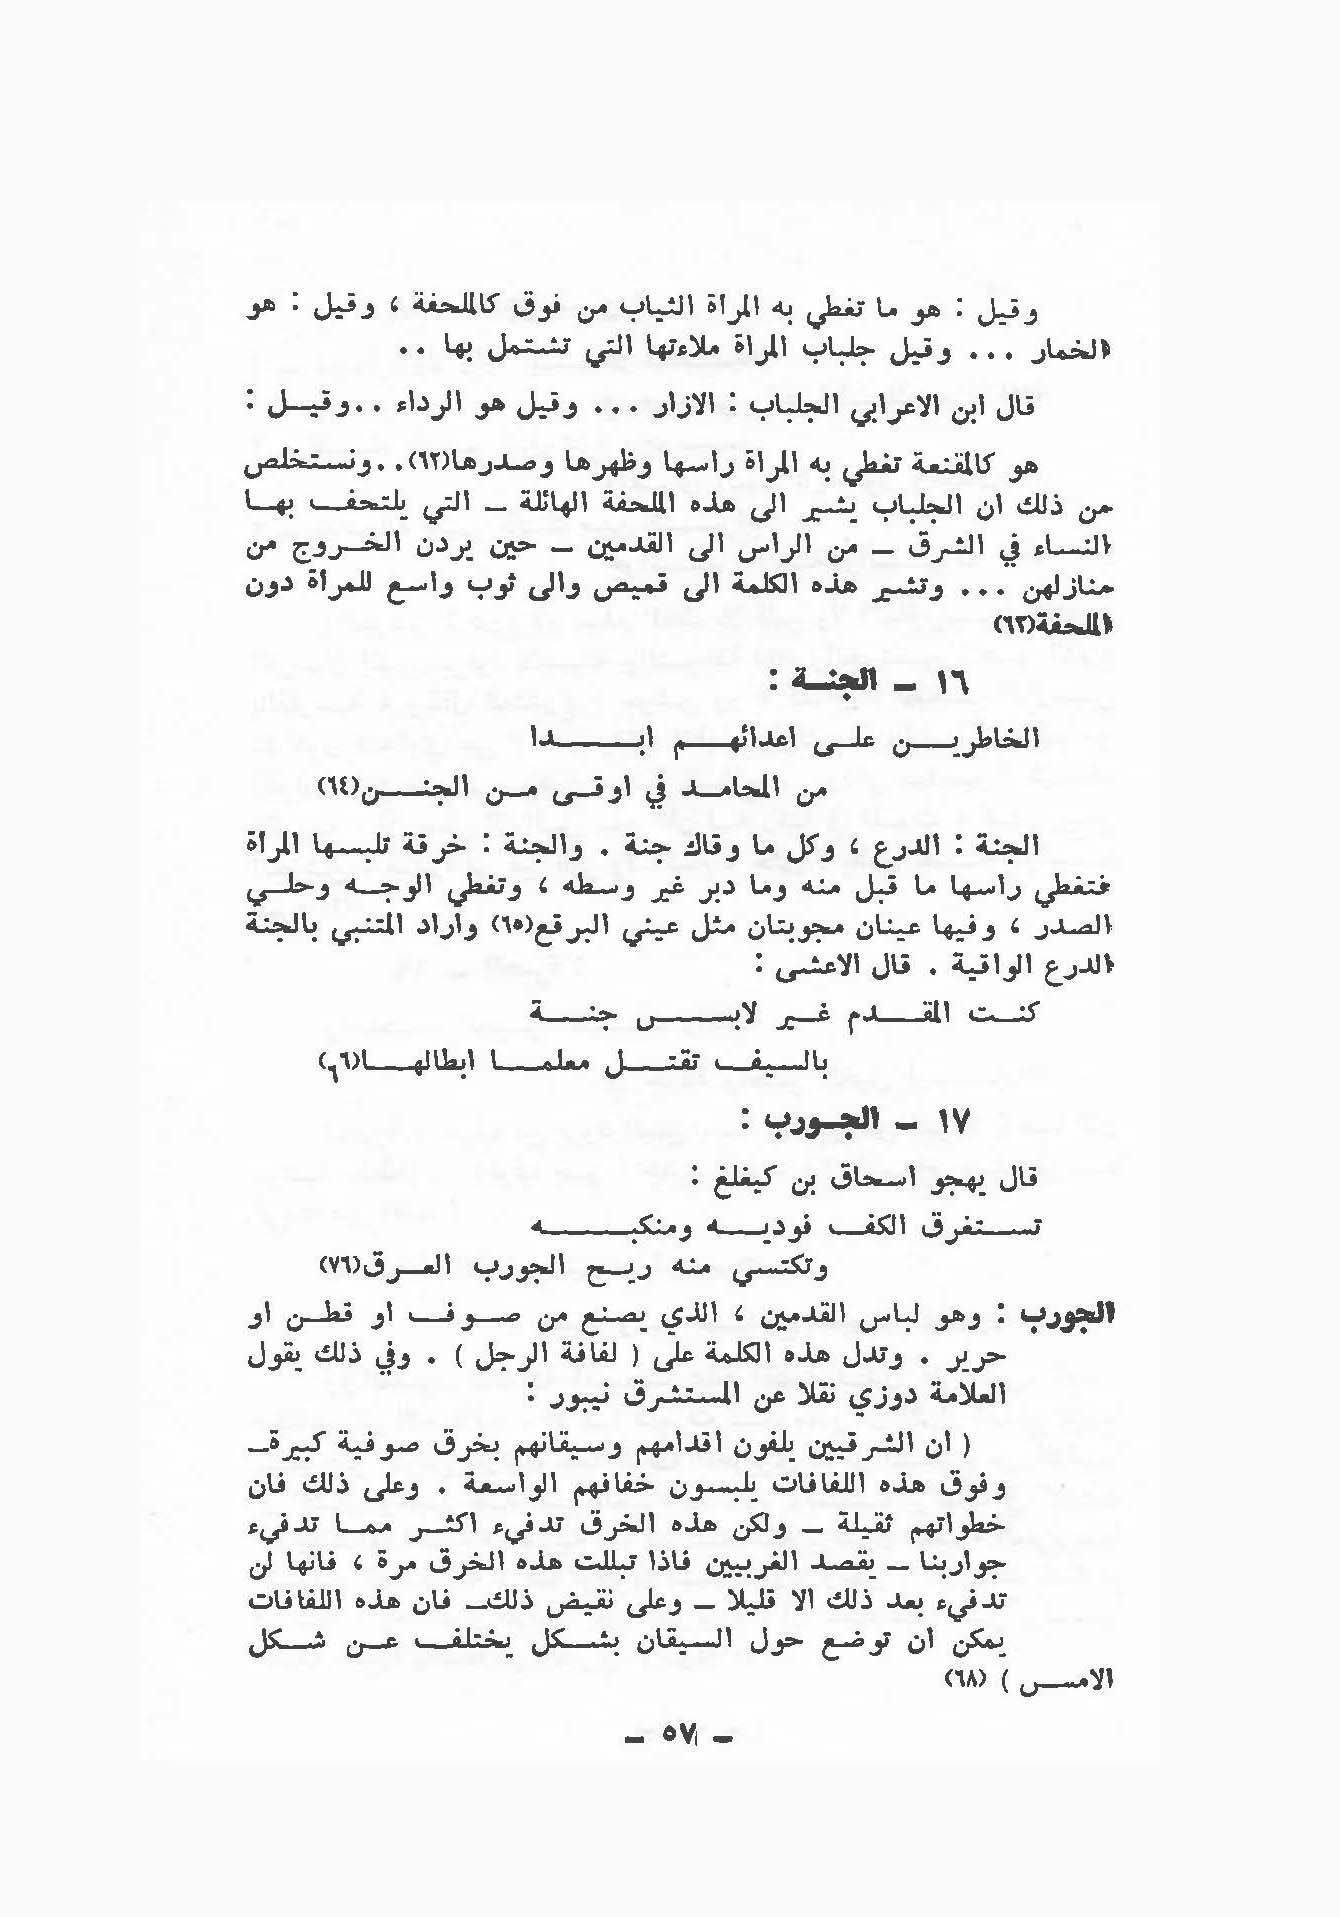 وقيل : هو ما تغطي به المرأة الثياب من فوق كالملحفة ، وقيل : هو
الخمار ... وقيل جلباب المرأة ملاءتها التي تشتمل بها ..
قال ابن الاعرابي الجلباب : الازار ... وقيل هو الرداء ..وقيل :
هو كالمقنعة تغطي به المرأة راسها وظهرها وصدرها(٦٢)..ونستخلص
من ذلك ان الجلباب يشير الى هذه الملحفة الهائلة – التي يلتحف بها
النساء في الشرق – من الراس الى القدمين – حين يردن الخروج من
منازلهن ... وتشير هذه الكلمة الى قميص والى ثوب واسع للمرأة دون
الملحفة(٦٣)
١٦ – الجنة :
الخاطرين على اعدائهم ابدا
من المحامد في اوقى من الجنن(٦٤)
الجنة : الدرع ، وكل ما وقاك جنة . والجنة : خرقة تلبسها المرأة
فتغطي راسها ما قبل منه وما دبر غير وسطه ، وتغطي الوجه وحلي
الصدر ، وفيها عينان مجوبتان مثل عيني البرقع(٦٥) واراد المتنبي بالجنة
الدرع الواقية . قال الاعشى :
كنت المقدم غير لابس جنة
بالسيف تقتل معلما ابطالها(٦٦)
١٧ – الجورب :
قال يهجو اسحاق بن كيغلغ :
تستغرق الكف فوديه ومنكبه
وتكتسي منه ريح الجورب العرق(٧٦)
الجورب : وهو لباس القدمين ، الذي يصنع من صوف او قطن او
حرير . وتدل هذه الكلمة على ( لفافة الرجل ) . وفي ذلك يقول
العلامة دوزي نقلا عن المستشرق نيبور :
( ان الشرقيين يلفون اقدامهم وسيقانهم بخرق صوفية كبيرة–
وفوق هذه اللفافات يلبسون خفافهم الواسعة . وعلى ذلك فان
خطواتهم ثقيلة – ولكن هذه الخرق تدفيء اكثر مما تدفيء
جواربنا – يقصد الغربيين فاذا تبللت هذه الخرق مرة ، فانها لن
تدفيء بعد ذلك الا قليلا – وعلى نقيض ذلك– فان هذه اللفافات
يمكن ان توضع حول السيقان بشكل يختلف عن شكل
الامس ) (٦٨)
– ٥٧ –